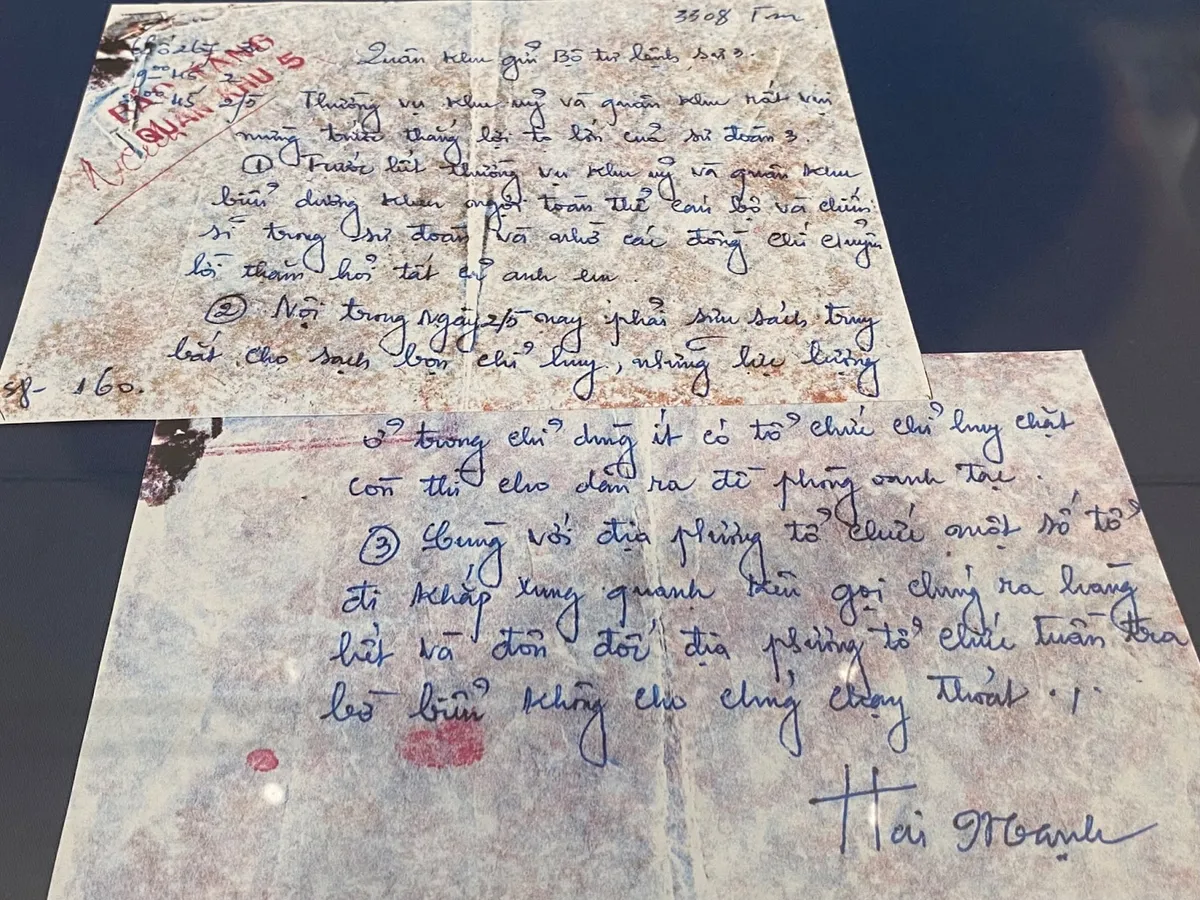 3308 Tm
Quân khu gửi Bộ tư lệnh sư 3.
9⁰⁰ 45
45 2/5
BẢO TÀNG
QUÂN KHU 5
Thường vụ khu uỷ và quân khu rất vui
mừng trước thắng lợi to lớn của sư đoàn 3.
① Trước hết thường vụ khu uỷ và quân khu
biểu dương khen ngợi toàn thể cán bộ và chiến
sĩ trong sư đoàn và nhờ các đồng chí chuyển
lời thăm hỏi tất cả anh em.
② Nội trong Ngày 2/5 này phải sưu sách truy
bắt cho sạch bọn chỉ huy, những lực lượng
sf- 160.
ở trong chỉ dùng ít có tổ chức chỉ huy chặt
còn thì cho dần ra đề phòng oanh tạc.
③ Cùng với địa phương tổ chức một số tổ
đi khắp xung quanh kêu gọi chúng ra hàng
hết và đôn đốc địa phương tổ chức tuần tra
bờ biển không cho chúng chạy thoát ./.
Hai Mạnh